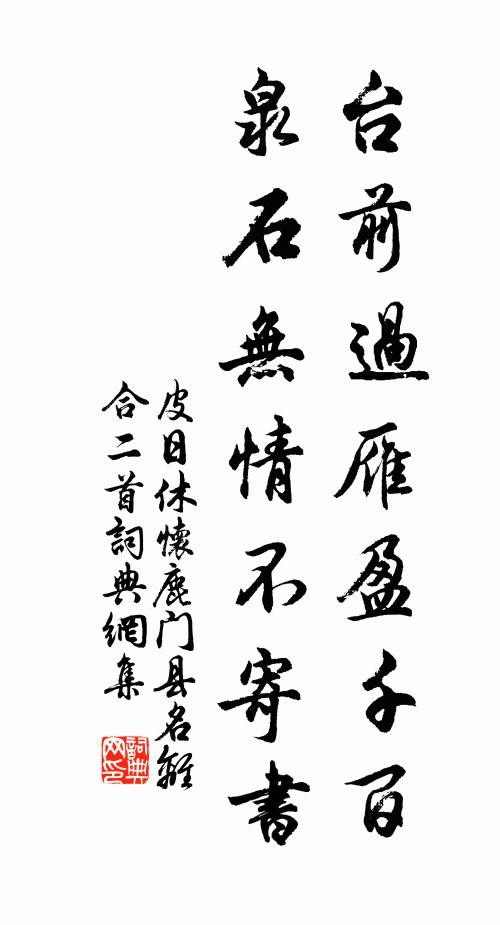 台前過雁盈千百
泉石無情不寄書
皮日休懷鹿门县名離
合二首詞典網集
詞典
网印